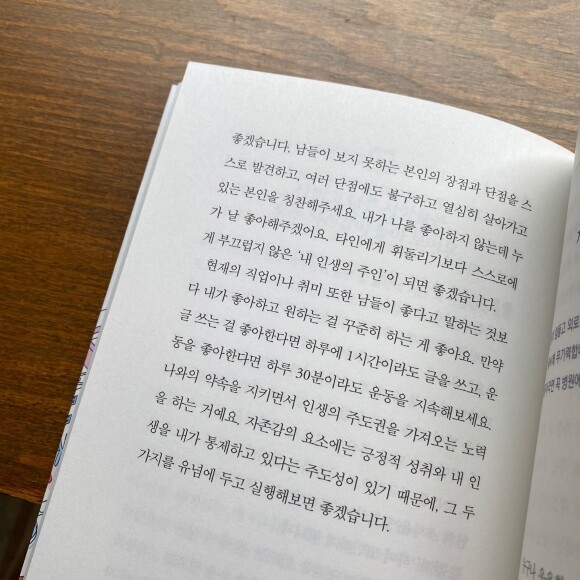 좋겠습니다. 남들이 보지 못하는 본인의 장점과 단점을 스
스로 발견하고, 여러 단점에도 불구하고 열심히 살아가고
있는 본인을 칭찬해주세요. 내가 나를 좋아하지 않는데 누
가 날 좋아해주겠어요. 타인에게 휘둘리기보다 스스로에
게 부끄럽지 않은 '내 인생의 주인'이 되면 좋겠습니다.
현재의 직업이나 취미 또한 남들이 좋다고 말하는 것보
다 내가 좋아하고 원하는 걸 꾸준히 하는 게 좋아요. 만약
글 쓰는 걸 좋아한다면 하루에 1시간이라도 글을 쓰고, 운
동을 좋아한다면 하루 30분이라도 운동을 지속해보세요.
나와의 약속을 지키면서 인생의 주도권을 가져오는 노력
을 하는 거예요. 자존감의 요소에는 긍정적 성취와 내 인
생을 내가 통제하고 있다는 주도성이 있기 때문에, 그 두
가지를 유념에 두고 실행해보면 좋겠습니다.